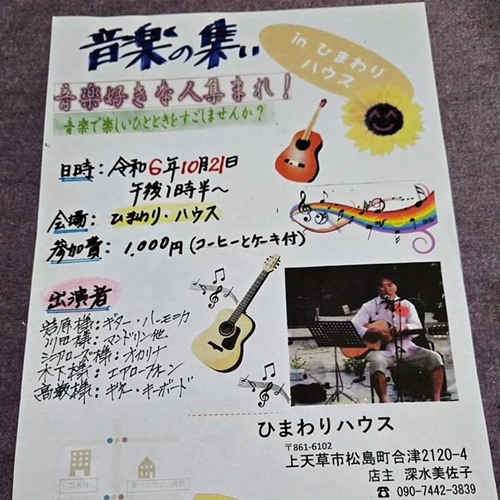 音楽の集い
in ひまわり
ハウス
音楽好きな人集まれ!
音楽で楽しいひとときをすごしませんか?
日時:令和6年10月21日
午後1時半~
会場:ひまわり・ハウス
参加費:1,000円(コーヒーとケーキ付)
出演者
岩原様:ギター・ハーモニカ
川田様:マンドリン他
様:オカリナ
木下様:エアローフォン
高敏様:ギター・キーボード
ひまわりハウス
〒861-6102
上天草市松島町合津2120-4
店主 深水美佐子
☎ 090-7442-3839
コメリ